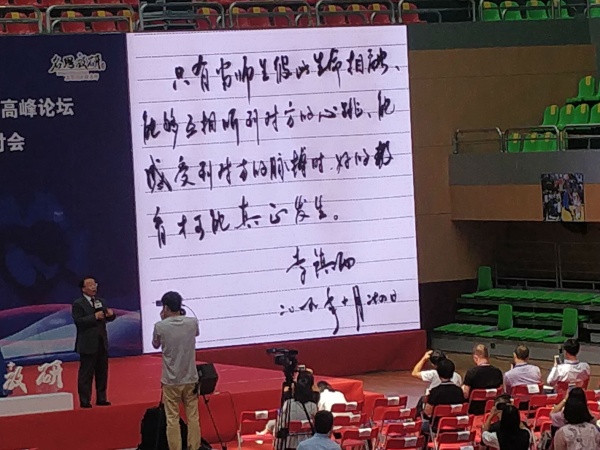 名思教研
高峰论坛
讨会
只有当师生彼此生命相融、
能够互相听到对方的心跳、能
感受到对方的脉搏时,好的教
育才可能真正发生。
李镇西
年十月
教研